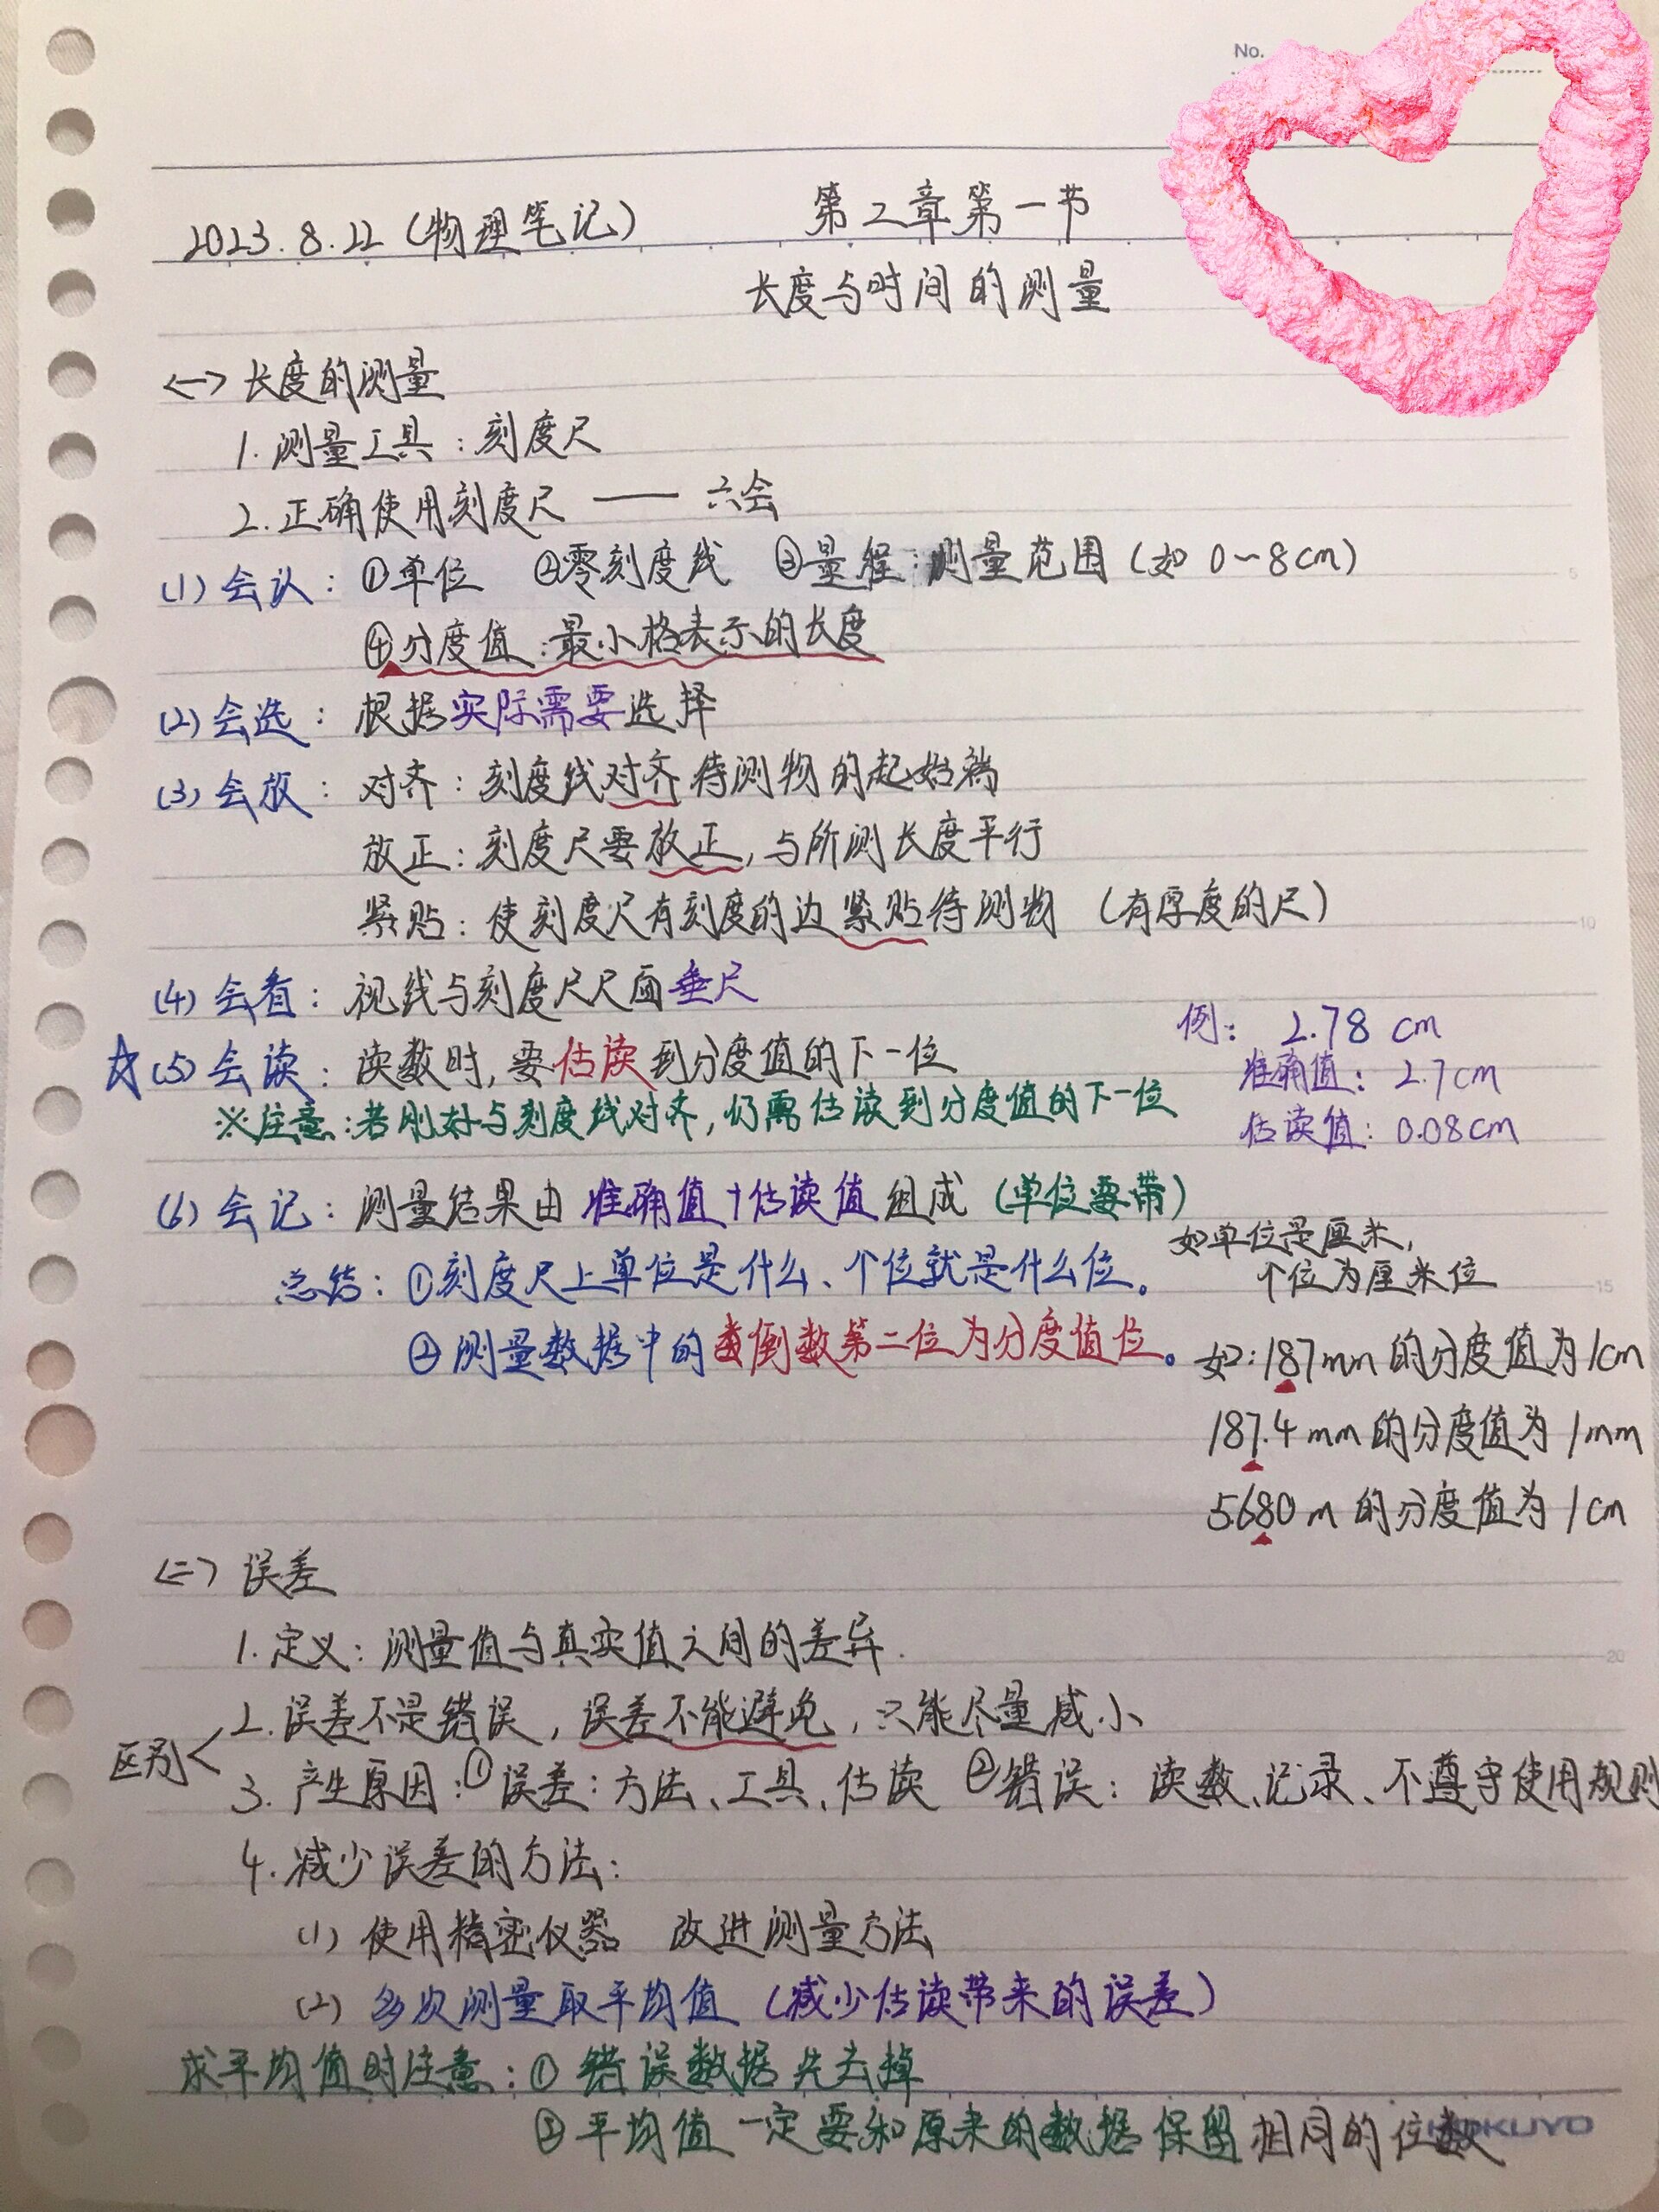 No.
2023.8.22 (物理笔记)
第二章第一节
长度与时间的测量
<一> 长度的测量
1. 测量工具：刻度尺
2. 正确使用刻度尺 —— 六会
(1) 会认：①单位 ②零刻度线 ③量程：测量范围 (如 0~8cm)
④分度值：最小格表示的长度
(2) 会选：根据实际需要选择
(3) 会放：对齐：刻度线对齐待测物的起始端
放正：刻度尺要放正，与所测长度平行
紧贴：使刻度尺有刻度的边紧贴待测物 (有厚度的尺)
(4) 会看：视线与刻度尺尺面垂尺
☆(5) 会读：读数时，要估读到分度值的下一位
※注意：若刚好与刻度线对齐，仍需估读到分度值的下一位
例： 2.78 cm
准确值：2.7cm
估读值：0.08cm
(6) 会记：测量结果由 准确值+估读值 组成 (单位要带)
总结：①刻度尺上单位是什么、个位就是什么位。
如单位是厘米，
个位为厘米位
②测量数据中的倒数第二位为分度值位。
如：187mm 的分度值为 1cm
187.4 mm 的分度值为 1mm
5.680 m 的分度值为 1cm
<二> 误差
1. 定义：测量值与真实值之间的差异.
2. 误差不是错误，误差不能避免，只能尽量减小
区别<
3. 产生原因：①误差：方法、工具、估读 ②错误：读数、记录、不遵守使用规则
4. 减少误差的方法：
(1) 使用精密仪器 改进测量方法
(2) 多次测量取平均值 (减少估读带来的误差)
求平均值时注意：① 错误数据先去掉
② 平均值一定要和原来的数据保留相同的位数
KOKUYO
5
10
15
20